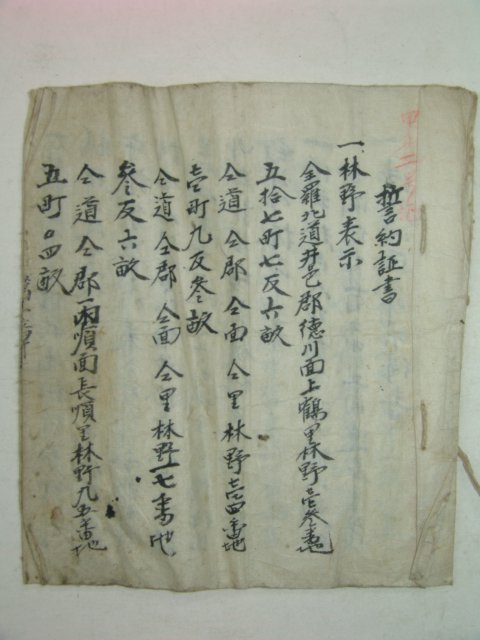 誓約証書
一、林野表示
全羅北道井邑郡德川面上鶴里林野壱参番地
五拾七町七反六畝
仝道 仝郡 仝面 仝里 林野壱四番地
壱町九反参畝
仝道 仝郡 仝面 仝里 林野一七番地
参反六畝
仝道 仝郡 雨順面長順里林野九五番地
五町〇四畝